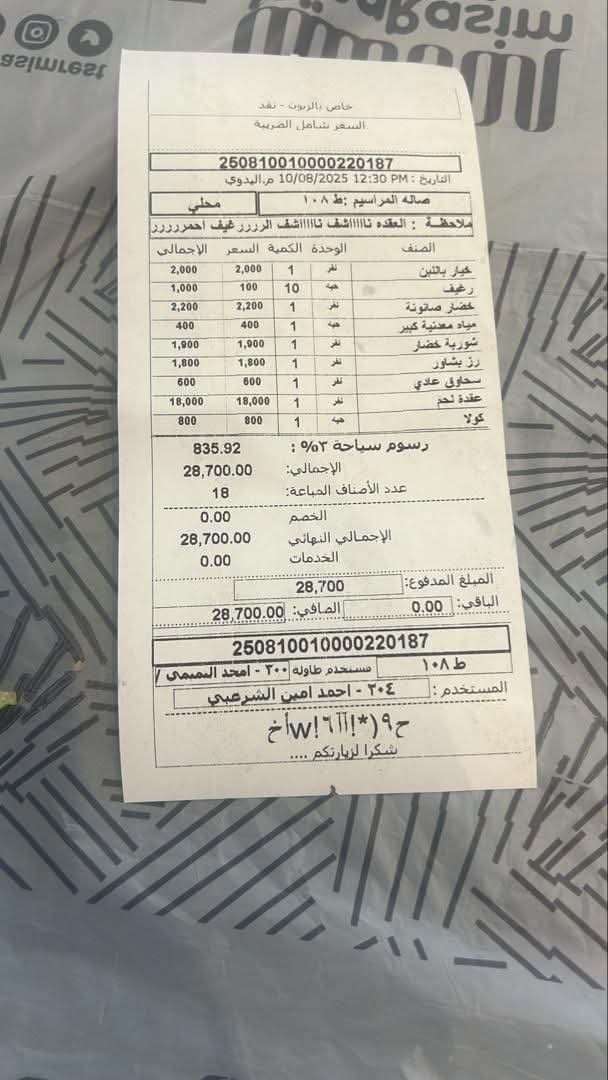 asimrest
@alRasim
خاص بالزبون - نقد
السعر شامل الضريبة
250810010000220187
التاريخ : 10/08/2025 12:30 PM م.اليدوي
صاله المراسيم :ط ١٠٨ محلي
ملاحظة : العقده نااااشف نااااشف الرررر غيف احمررررر
الصنف الوحدة الكمية السعر الإجمالي
خيار باللبن نفر 1 2,000 2,000
رغيف حبه 10 100 1,000
خضار صانونة نفر 1 2,200 2,200
مياه معدنية كبير حبه 1 400 400
شوربة خضار نفر 1 1,900 1,900
رز بشاور نفر 1 1,800 1,800
سحاوق عادي نفر 1 600 600
عقدة لحم نفر 1 18,000 18,000
كولا حبه 1 800 800
رسوم سياحة ٣% : 835.92
الإجمالي: 28,700.00
عدد الأصناف المباعة: 18
الخصم 0.00
الإجمالي النهائي 28,700.00
الخدمات 0.00
المبلغ المدفوع: 28,700
الباقي: 0.00 الصافي: 28,700.00
250810010000220187
ط ١٠٨ مستخدم طاوله ٢٠٠ - امجد /
المستخدم : ٢٠٤ - احمد امين الشرعبي
شكرا لزيارتكم ....